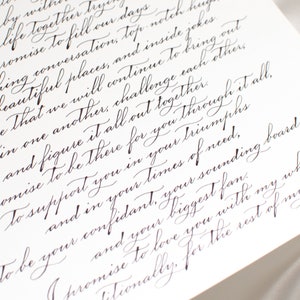 by witho
life together trying
promise to fill our days
ing conversation, top notch hugs
beautiful places, and inside jokes
e that we will continue to bring out
in one another, challenge each other,
and figure it all out together
omise to be there for you through it all,
to support you in your triumphs
and in your times of need,
To be your confidant, your sounding board
and your biggest fan.
I promise to love you with my wh
itionally, for the rest of m